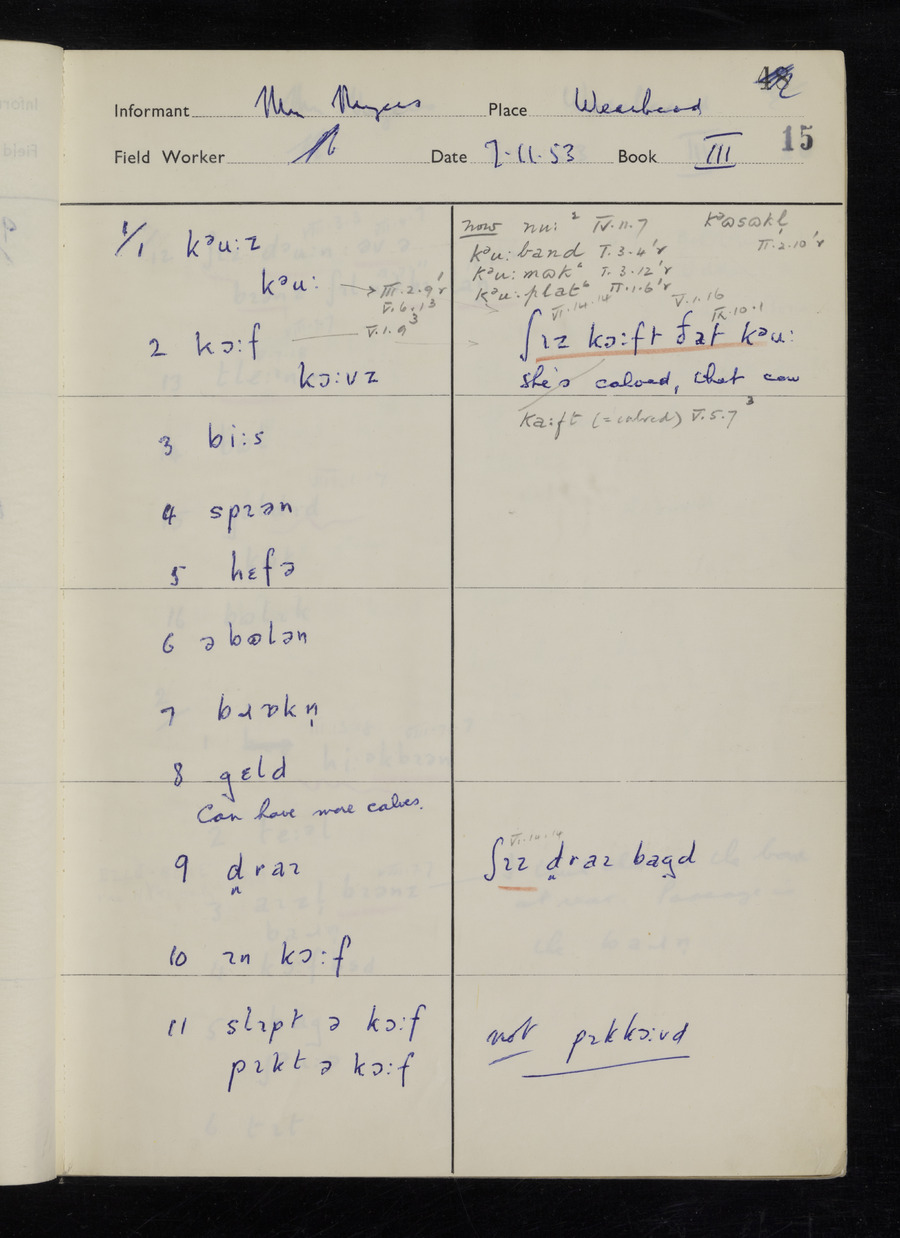 15
Informant Place Wearhead
Field Worker Date 7.11.53 Book III
1/1 kᵊu:z
kᵊu: → III.2.9'r
V.6.1³
V.1.9³
2 kɔ:f
kɔ:vz
3 bi:s
4 spɪən
5 hɛfə
6 əbʊlən
7 bɹɒkn̩
8 gɛld
Can have more calves.
9 d̪raɪ
10 ɪn kɔ:f
11 slɪpt ə kɔ:f
pɪkt ə kɔ:f
now nu:² IV.11.7 kᵊʊsʊkl
II.2.10'r
kᵊu:band I.3.4'r
kᵊu:mʊk⁶ I.3.12'r
kᵊu:plat⁶ II.1.6'r
VI.14.14 V.1.16
IX.10.1
ʃɪz kɔ:ft ðat kᵊu:
she's calved, that cow
ka:ft (= calved) V.5.7³
VI.14.14
ʃɪz d̪raɪ bagd
not pɪkkɔ:vd